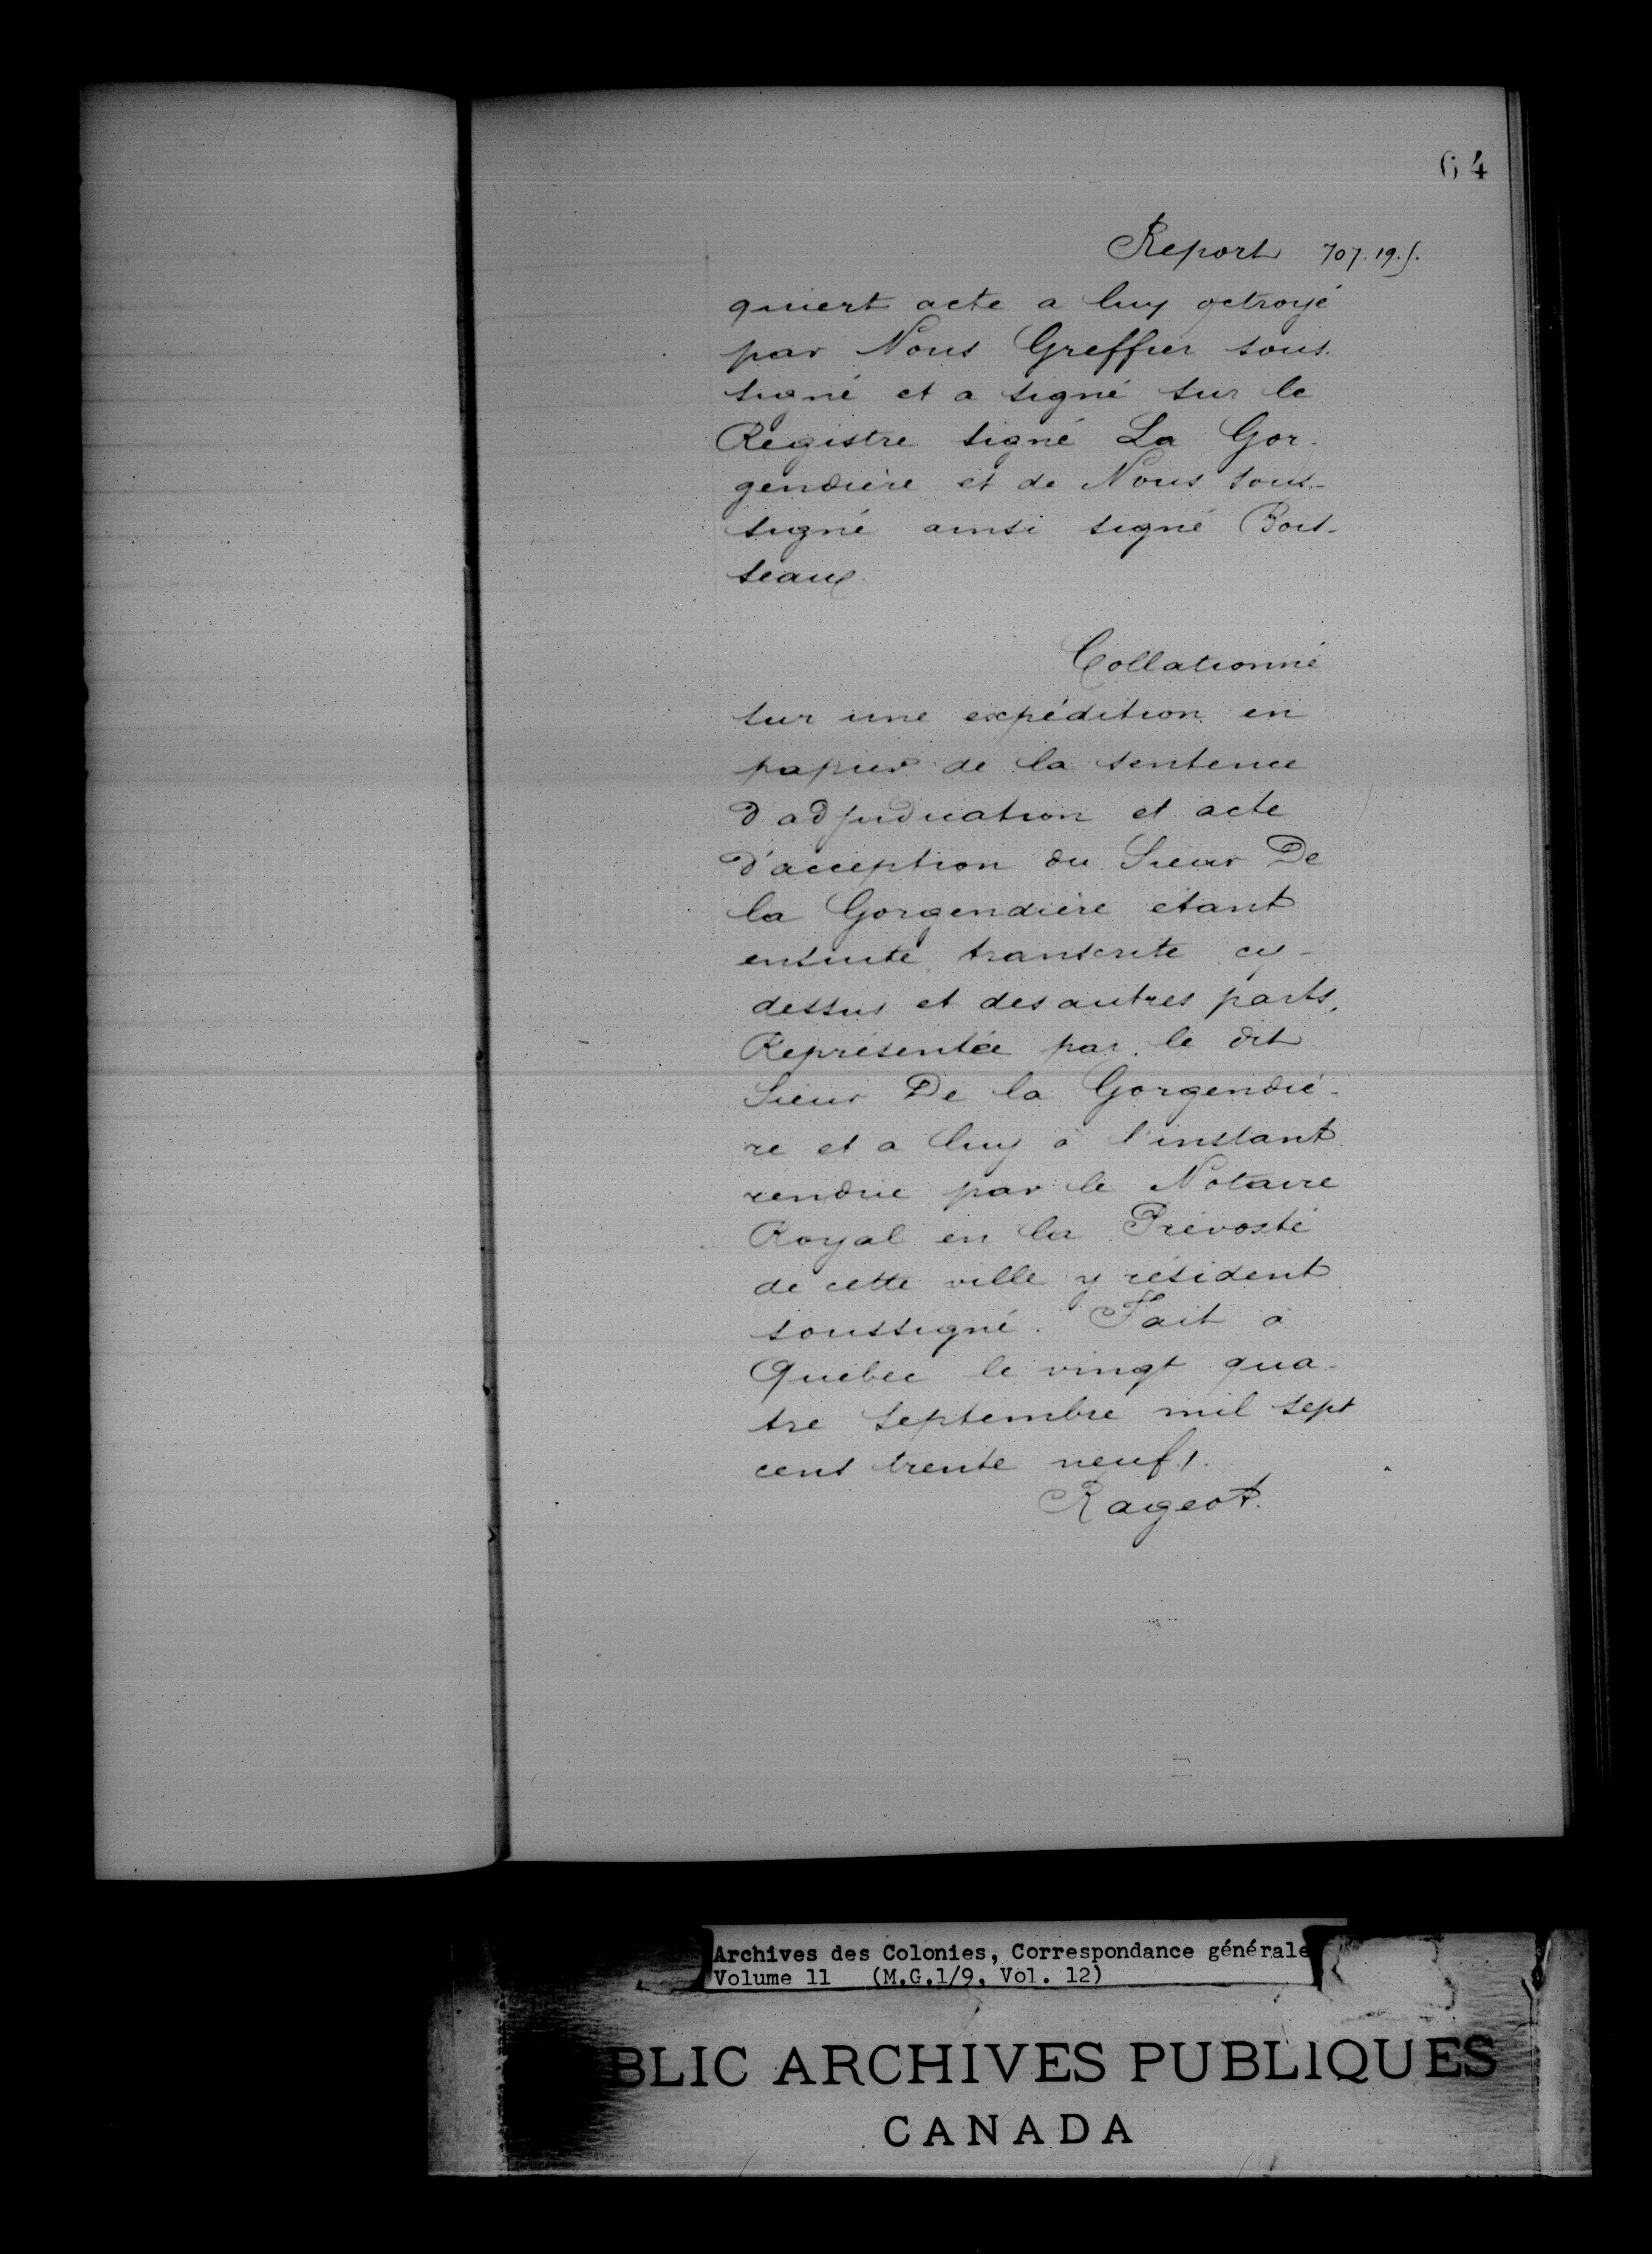 64
Report 707.19.s.
quiert acte a luy octroyé
par Nous Greffier sous.
signé et a signé sur le
Registre signé La Gor-
gendière et de Nous sous-
signé ainsi signé Bois-
seaux
Collationné
sur une expédition en
papier de la sentence
d'adjudication et acte
d'acception du Sieur De
la Gorgendière etant
ensuite transcrite cy-
dessus et des autres parts,
Représentée par le dit
Sieur De la Gorgendiè-
re et a luy à l'instant
rendue par le Notaire
Royal en la Prévosté
de cette ville y résident
soussigné. Fait à
Québec le vingt qua-
tre septembre mil sept
cens trente neuf.
Rageot.
Archives des Colonies, Correspondance générale
Volume 11 (M.G.1/9, Vol. 12)
BLIC ARCHIVES PUBLIQUES
CANADA